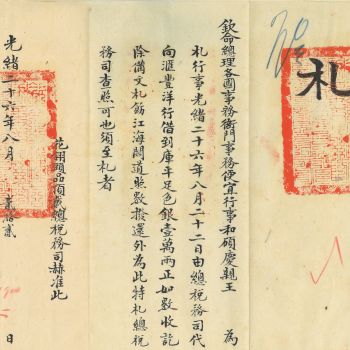 札
欽命總理各國事務衙門事務便宜行事和碩慶親王 為
札行事光緒二十六年八月二十二日由總稅務司代
向滙豐洋行借到庫平足色銀壹萬兩正如數收訖
除備文札飭江海關道照數撥還外為此特札總稅
務司查照可也須至札者
花翎頭品頂戴總稅務司赫准此
光緒二十六年八月 貳拾貳 日